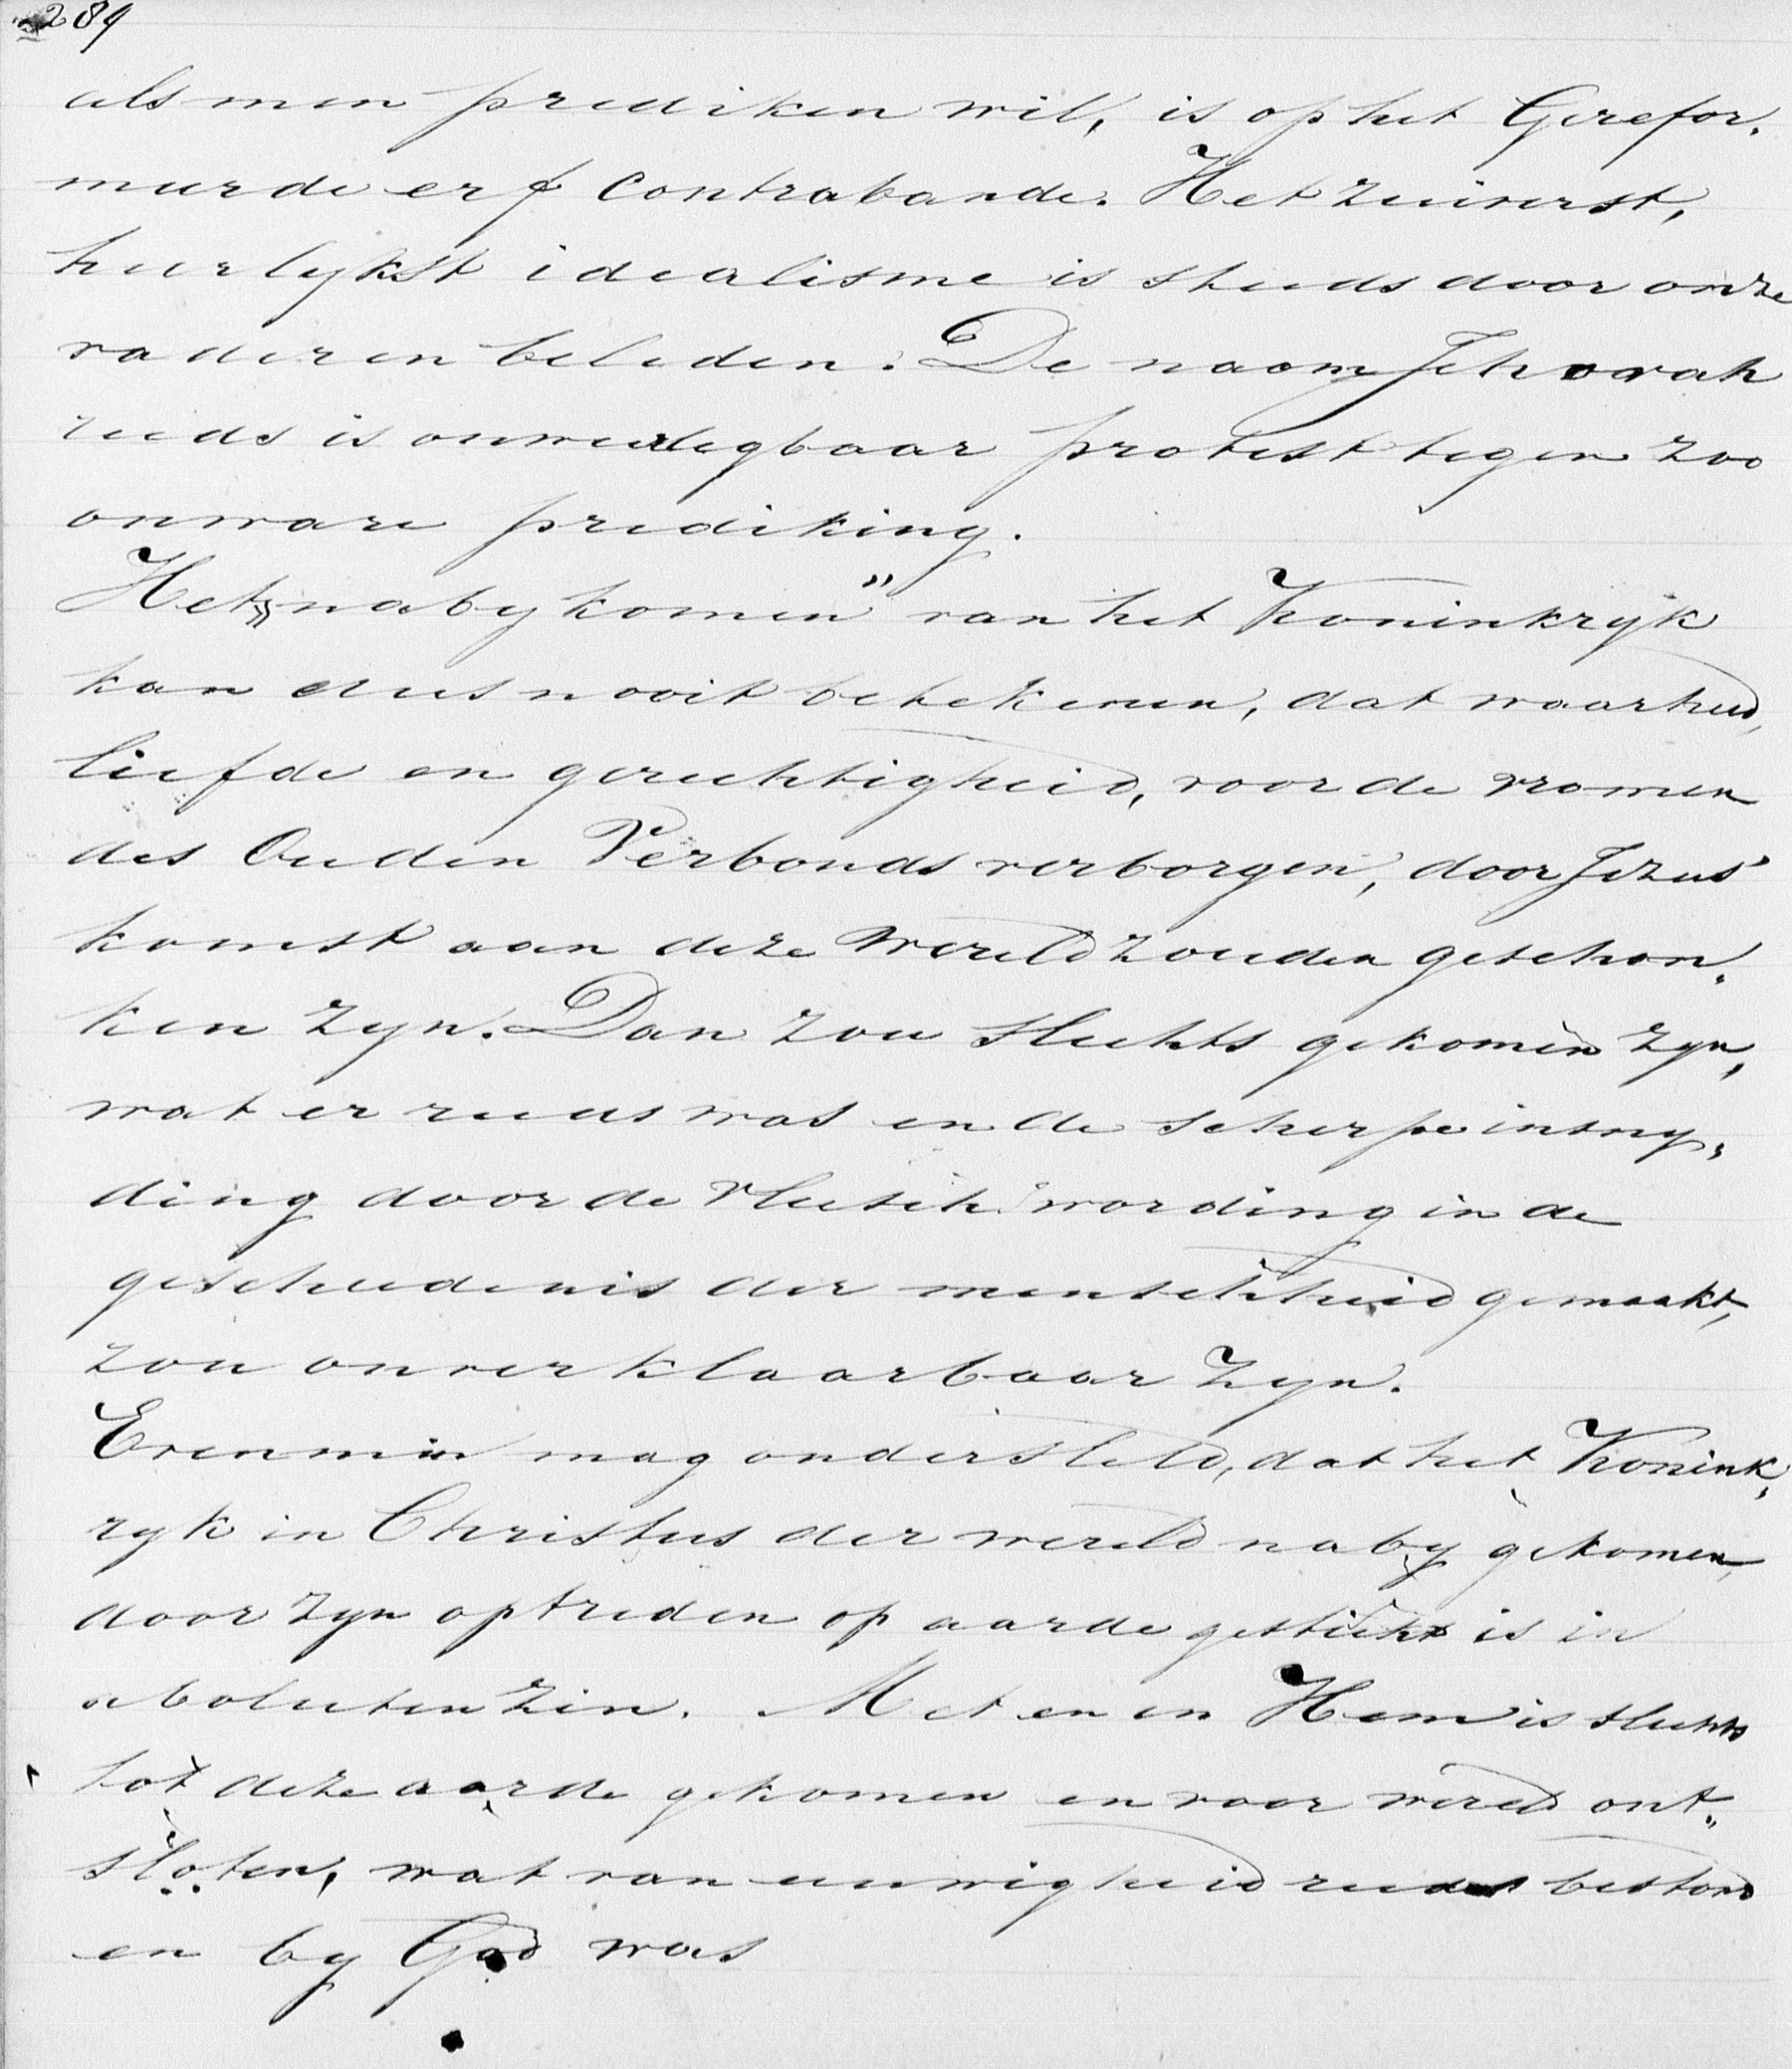 289
als men prediken wil, is op het Gerefor.
meerde erf Contrabande. Het zuiverst,
heerlykst idealisme is steeds door onze
vaderen beleden. De naam Jehovah
reeds is onweerlegbaar protest tegen zoo
onware prediking.
Het „naby komen" van het Koninkryk
kan dus nooit beteekenen, dat waarheid,
liefde en gerechtigheid, voor de vromen
des Ouden Verbonds verborgen, door Jezus'
komst aan deze wereld zouden geschon.
ken zyn. Dan zou slechts gekomen zyn,
wat er reeds was en de scherpe insny.
ding door de vleeschwording in de
geschiedenis der menschheid gemaakt,
zou onverklaarbaar zyn.
Evenmin mag ondersteld, dat het Konink.
ryk in Christus der wereld naby gekomen,
door zyn optreden op aarde gesticht is in
aboluten zin. Met en in Hem is slechts
tot deze aarde gekomen en voor wereld ont.
sloten, wat van eeuwigheid reeds bestond
en by God was